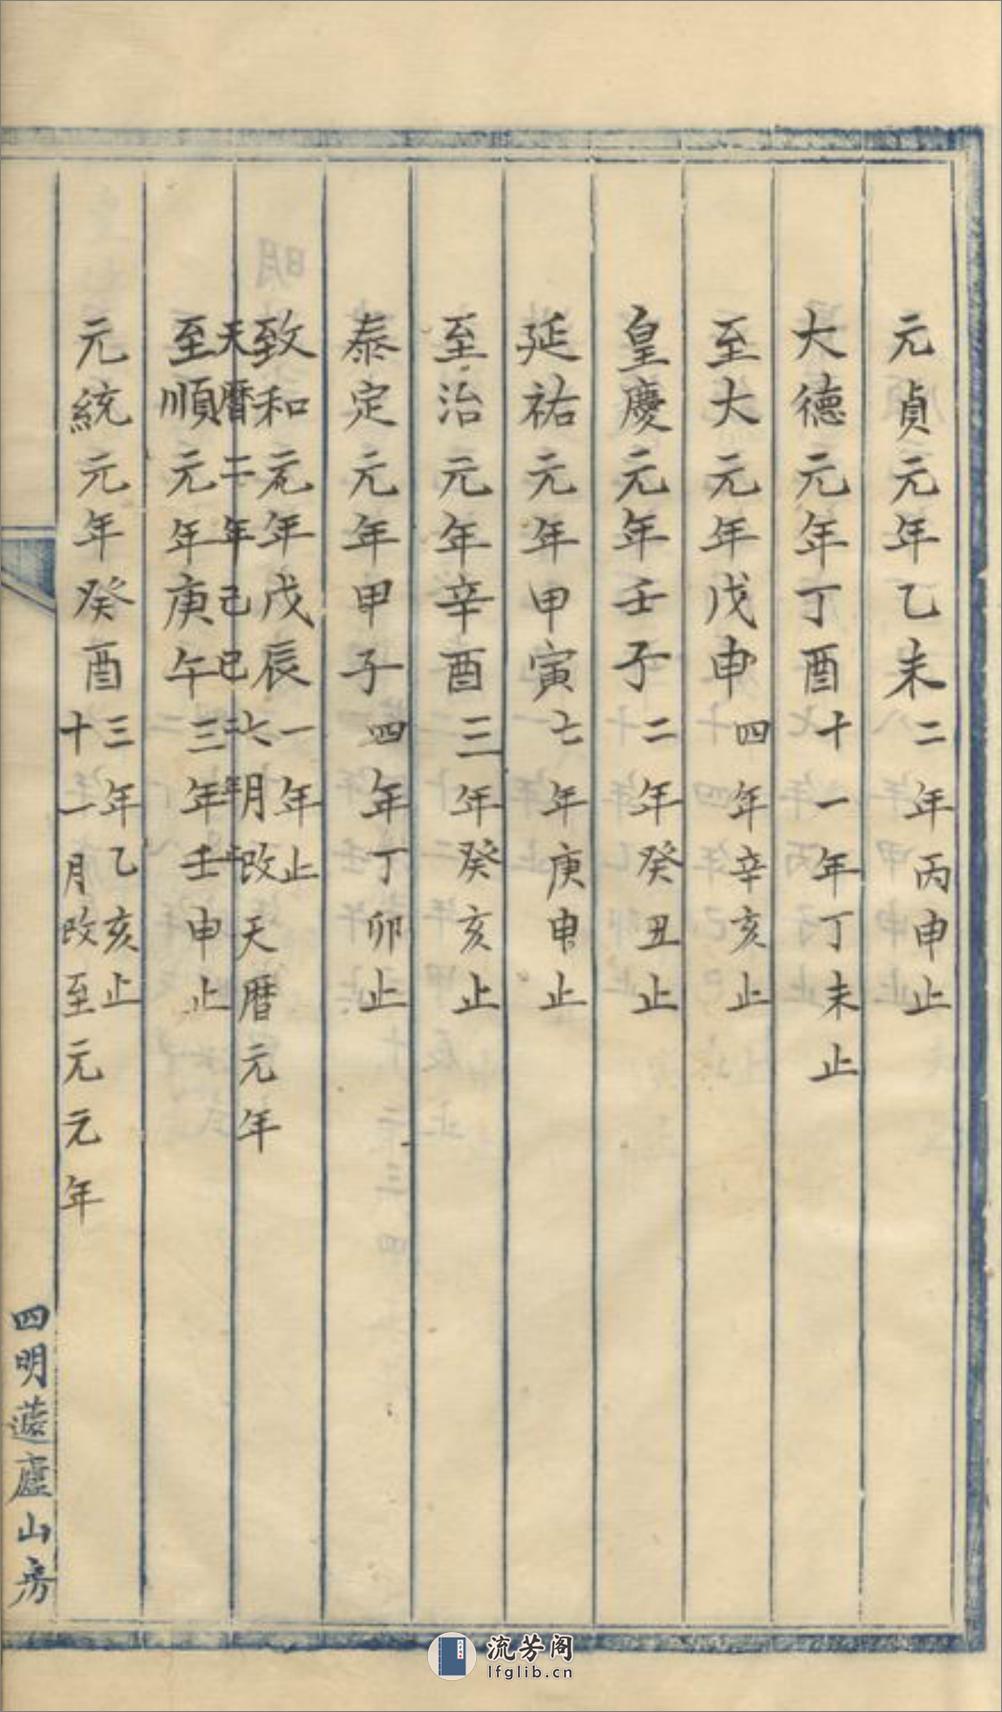 元貞元年乙未二年丙申止
大德元年丁酉十一年丁未止
至大元年戊申四年辛亥止
皇慶元年壬子二年癸丑止
延祐元年甲寅七年庚申止
至治元年辛酉三年癸亥止
泰定元年甲子四年丁卯止
致和元年戊辰一年止
六月改天暦元年
天暦二年己巳
至順元年庚午三年壬申止
元統元年癸酉三年乙亥止
十一月改至元元年
四明蘧廬山房
流芳阁
lfglib.cn